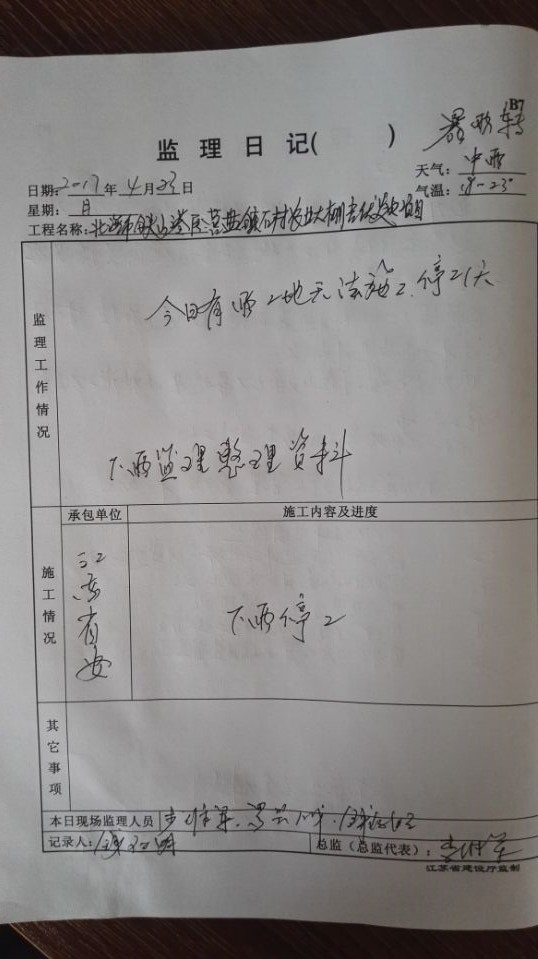 187
监 理 日 记( )
天气: 中雨
日期: 2017 年 4 月 23 日
气温: 18-23°
星期: 日
工程名称: 北海市铁山港区营盘镇石村农业大棚光伏发电项目
监理工作情况
今日有雨工地无法施工.停工1天
下雨监理整理资料
承包单位
施工内容及进度
施工情况
江苏省安
下雨停工
其它事项
本日现场监理人员
记录人:
总监(总监代表):
江苏省建设厅监制